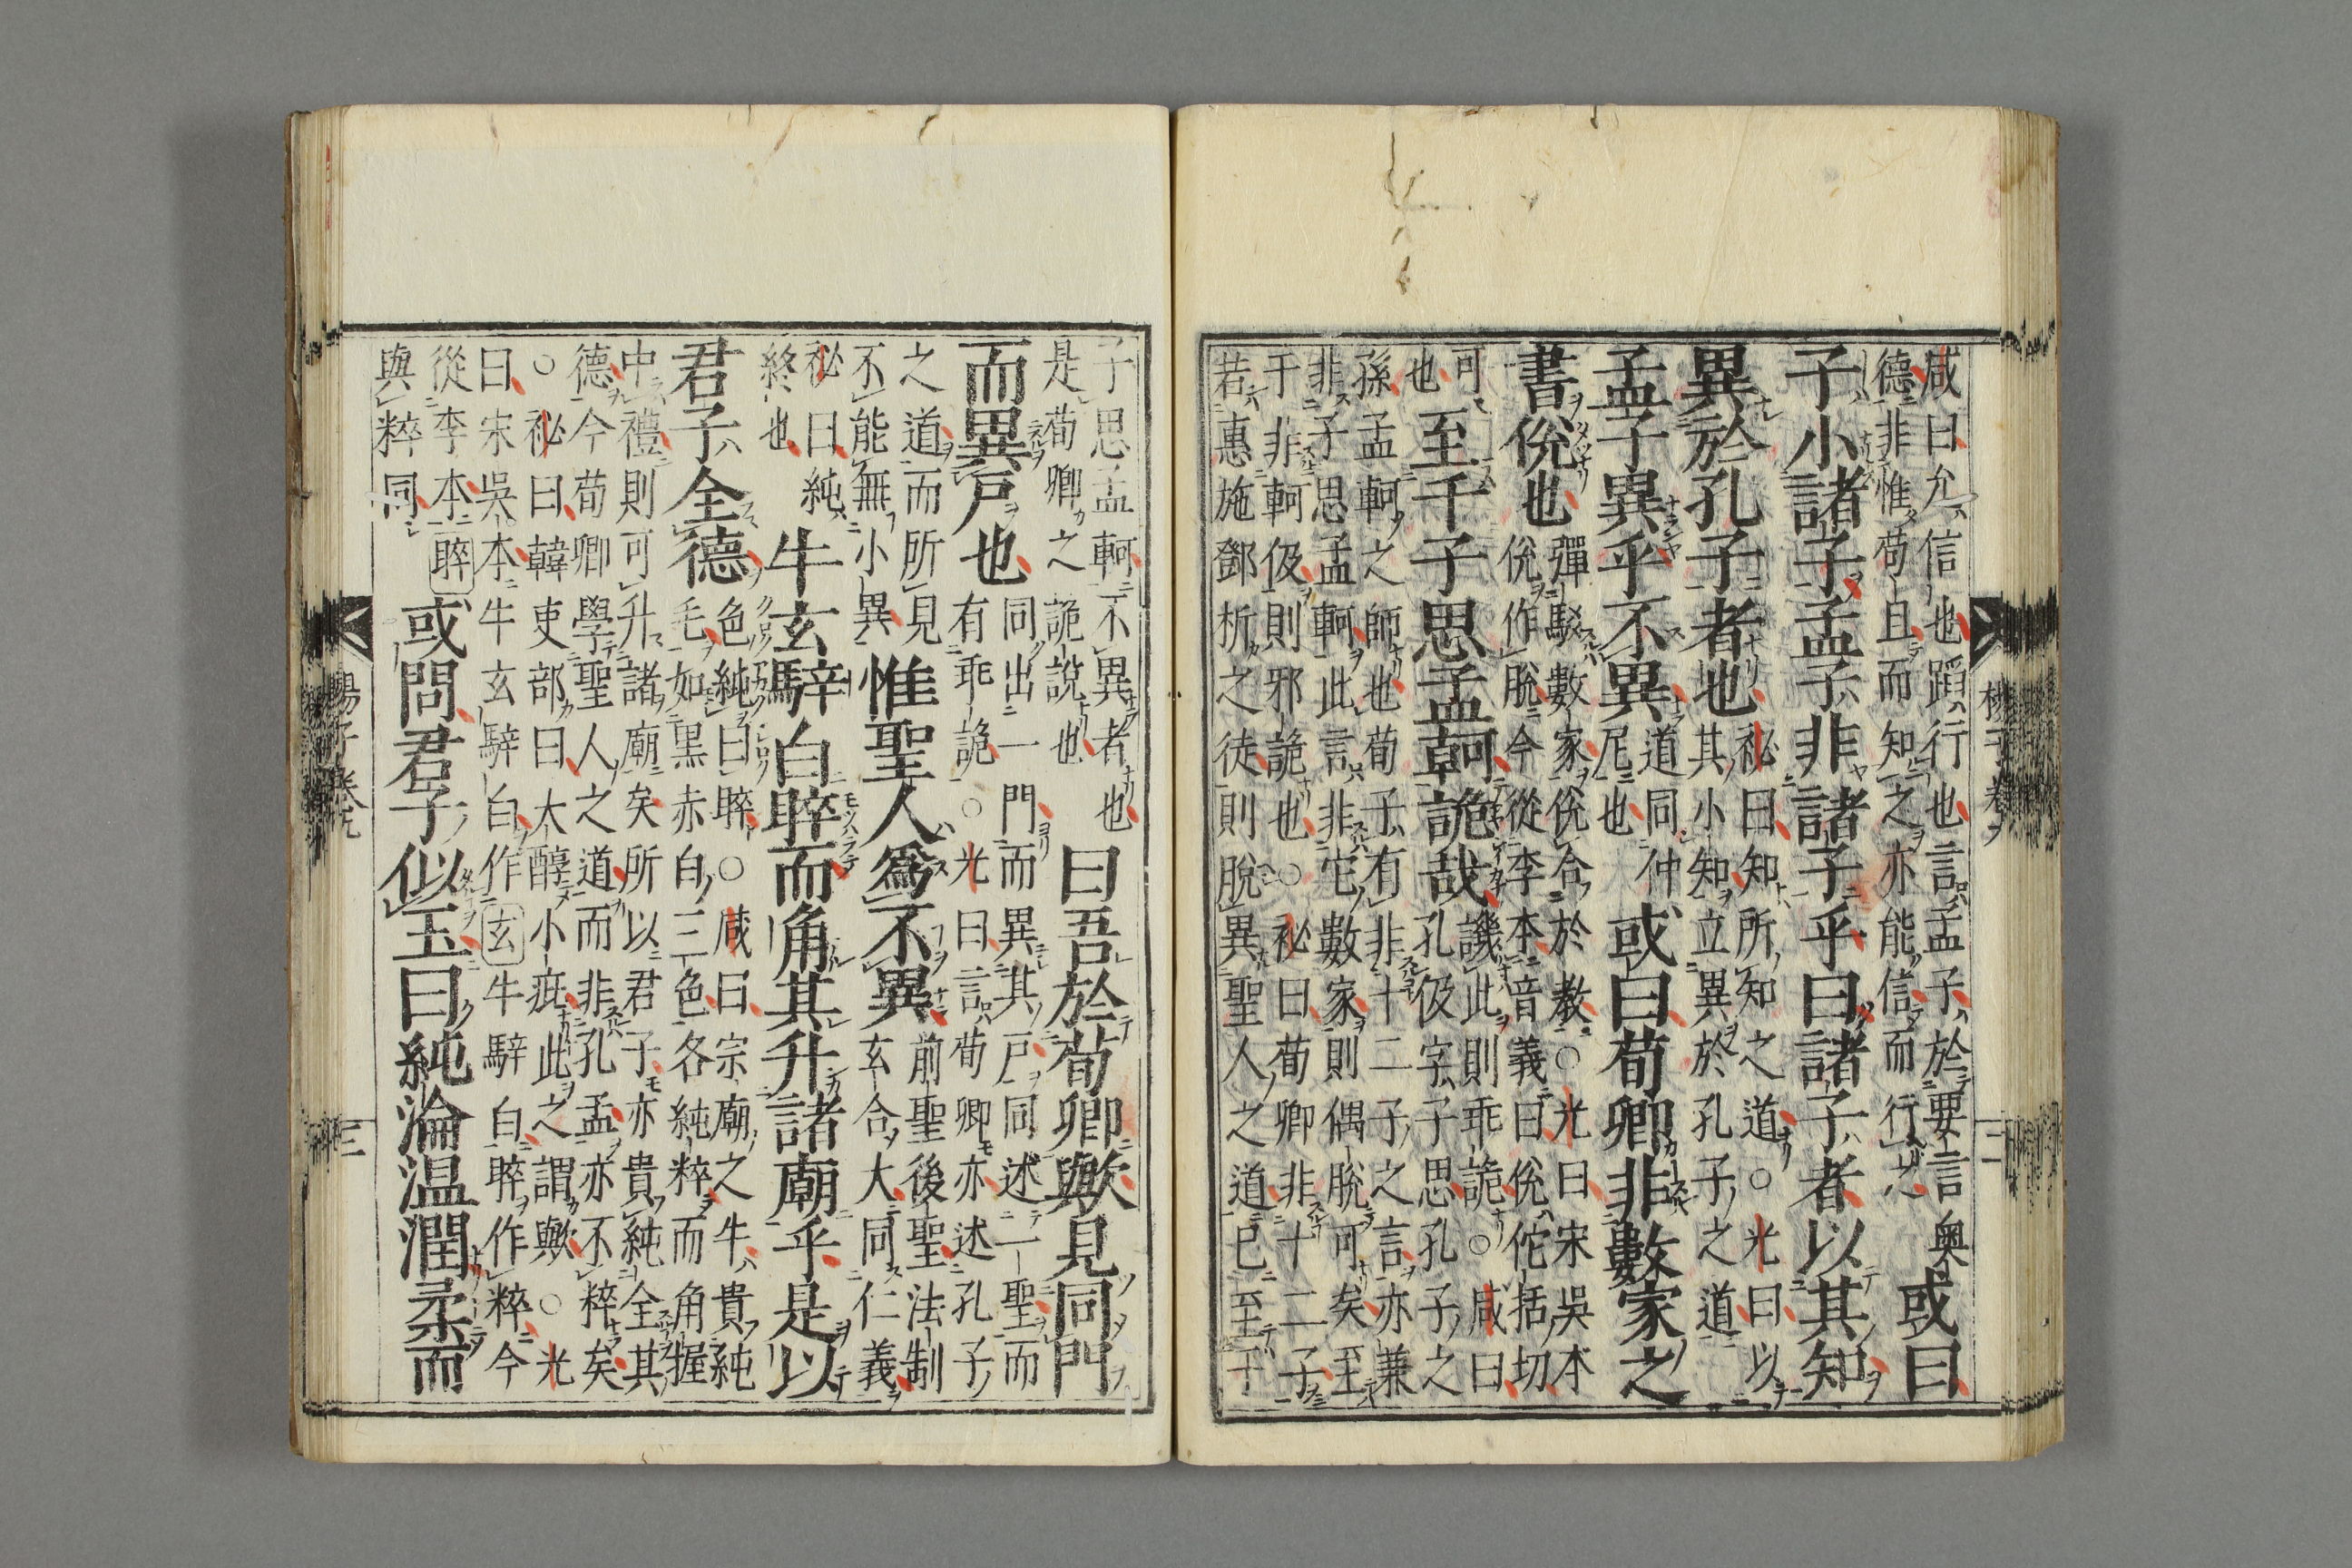 咸曰允信也蹈行也言孟子於要言奥
德非惟苟且而知之亦能信而行之
或曰
子小諸子孟子非諸子乎曰諸子者以其知
異於孔子者也
祕曰知所知之道○光曰以
其小知立異於孔子之道
孟子異乎不異
道同仲
尼也
或曰荀卿非數家之
書侻也
彈駁數家侻合於教○光曰宋吳本
侻作脫今從李本音義曰侻佗括切
可
也
至于子思孟軻詭哉
譏此則乖詭○咸曰
孔伋字子思孔子之
孫孟軻之師也荀子有非十二子之言亦兼
非子思孟軻此言非它數家則偶脫可矣至
于非軻伋則邪詭也○祕曰荀卿非十二子
若惠施鄧析之徒則脫異聖人之道已至于
子思孟軻不異者也
是荀卿之詭說也
曰吾於荀卿歟見同門
而異戶也
同出一門而異其戶同述一聖而
有乖詭○光曰言荀卿亦述孔子
之道而所見
不能無小異
惟聖人爲不異
前聖後聖法制
玄合大同仁義
祕曰純
終也
牛玄騂白睟而角其升諸廟乎是以
君子全德
色純曰睟○咸曰宗廟之牛貴純
毛如黑赤白三色各純粹而角握
中禮則可升諸廟矣所以君子亦貴純全其
德今荀卿學聖人之道而非孔孟亦不粹矣
○祕曰韓吏部曰大醇小疵此之謂歟○光
曰宋吳本牛玄騂白作玄牛騂白睟作粹今
從李本睟
與粹同
或問君子似玉曰純淪温潤柔而
三